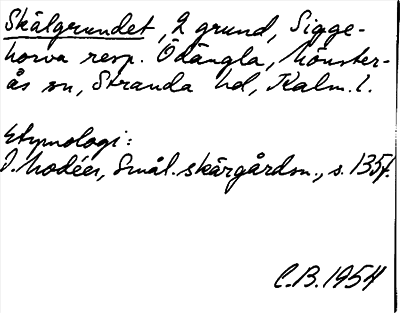 Skälgrundet, 2 grund, Sigge-
horva resp. Ödängla, Mönster-
ås sn, Stranda hd, Kalm. l.
Etymologi:
I. Modéer, Smål. skärgårdsn., s. 135f.
C.B. 1954